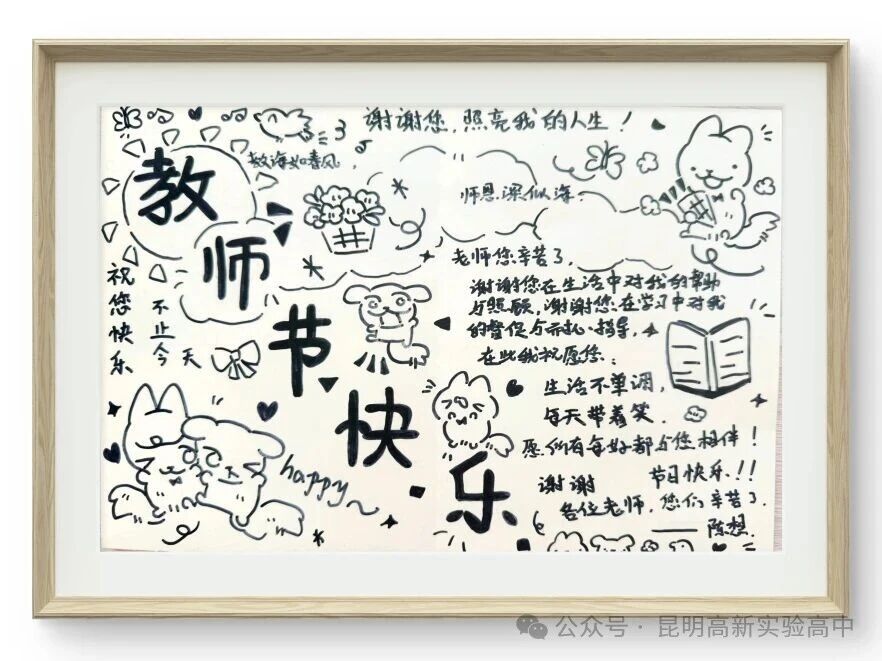 谢谢您,照亮我的人生!
教诲如春风,
师恩深似海.
教师节快乐
祝您快乐
不止今天
老师您辛苦了,
谢谢您在生活中对我的帮助
与照顾,谢谢您在学习中对我
的督促与开扒·指导,
在此我祝愿您:
生活不单调,
每天带着笑.
愿所有美好都与您相伴!
节日快乐!!
谢谢
各位老师,您们辛苦了
——陈想.
happy~
公众号 · 昆明高新实验高中